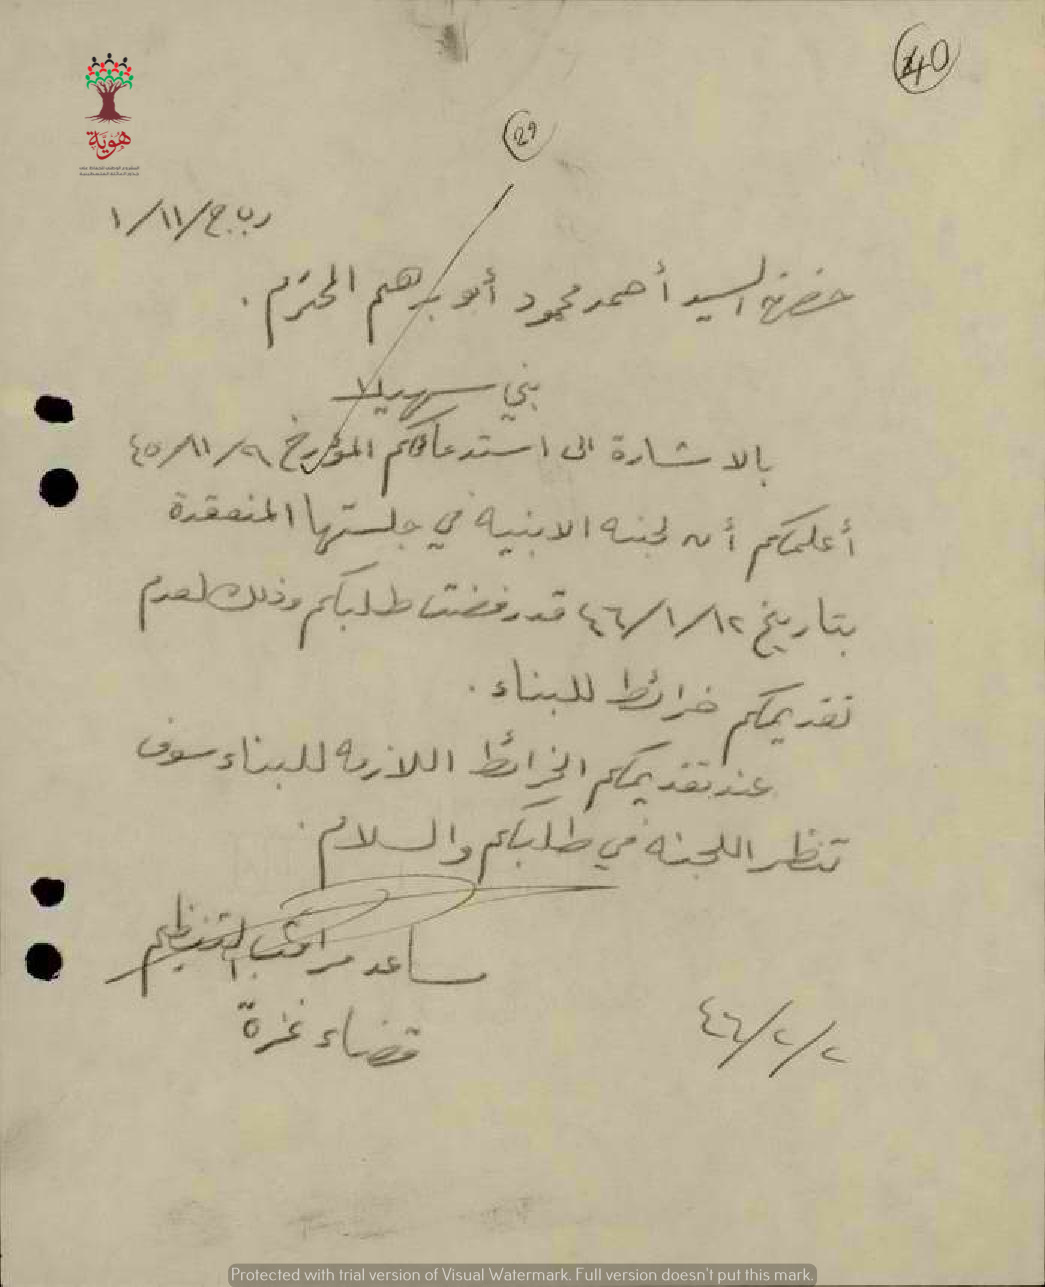 40
هوية
29
ر ب ج/١١/١
حضرة السيد أحمد محمود أبو برهم المحترم .
بني سهيلا
بالاشارة الى استدعائكم المؤرخ ٤٥/١١/٢٩
أعلمكم أن لجنة الابنية في جلستها المنعقدة
بتاريخ ٤٦/١/١٢ قد رفضت طلبكم وذلك لعدم
تقديمكم خرائط للبناء .
عند تقديمكم الخرائط اللازمة للبناء سوف
تنظر اللجنة في طلبكم والسلام .
مساعد مراقب التنظيم
قضاء غزة
٤٦/٢/٢
Protected with trial version of Visual Watermark. Full version doesn't put this mark.